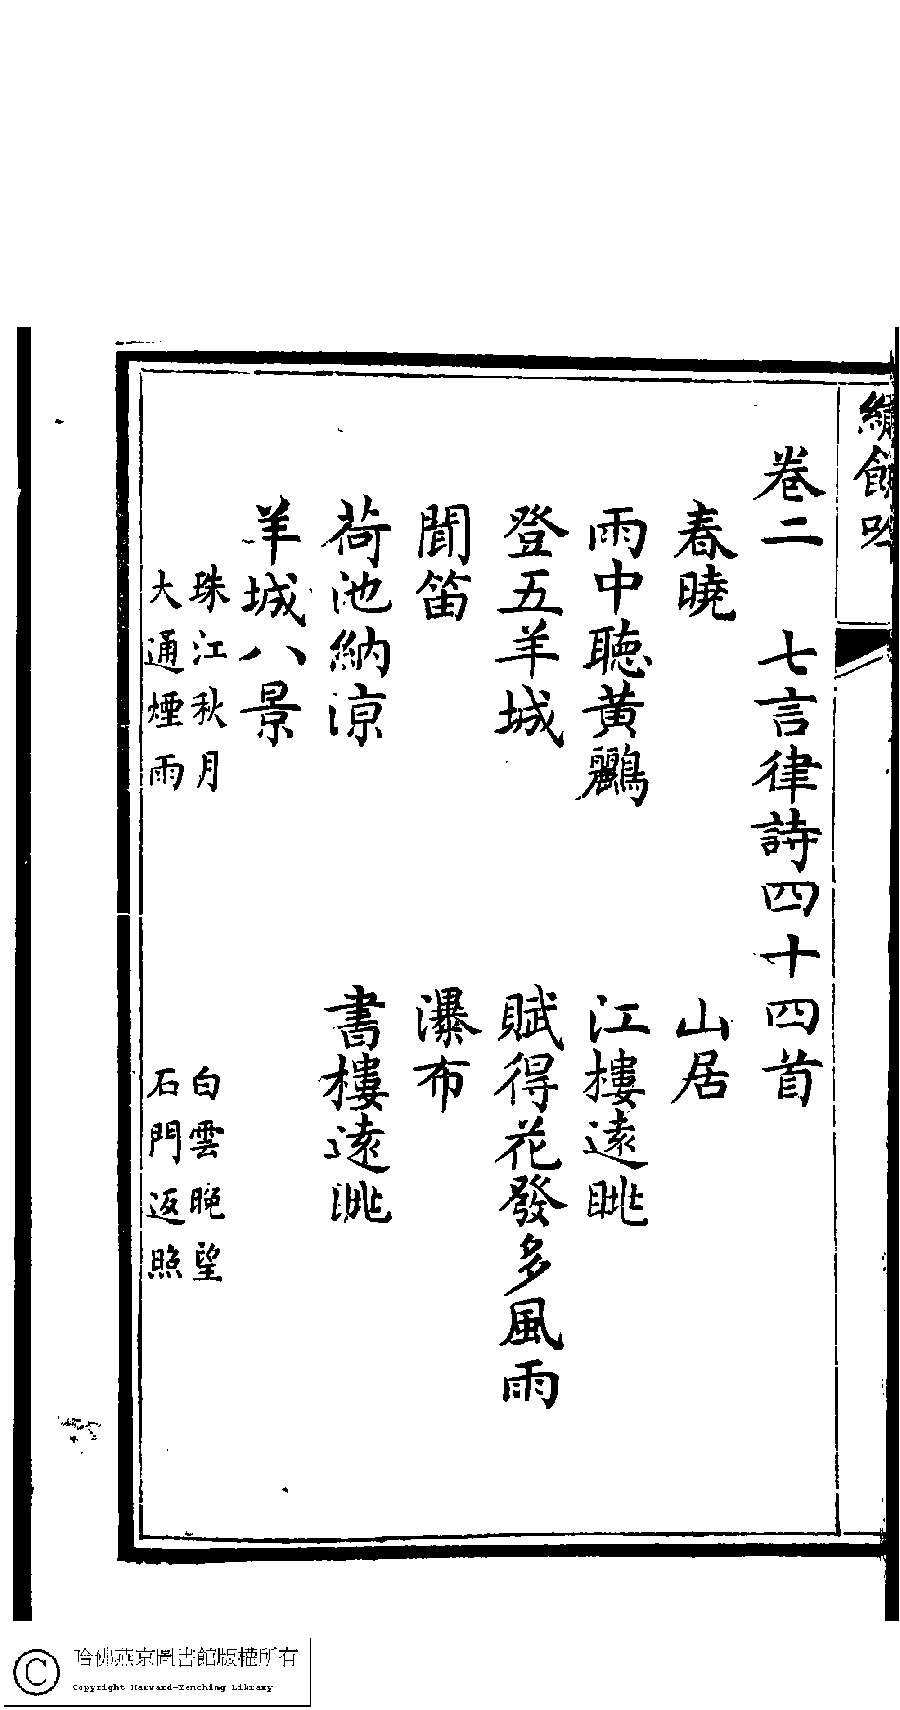 繡餘吟
卷二 七言律詩四十四首
春曉 山居
雨中聽黃鸝 江樓遠眺
登五羊城 賦得花發多風雨
聞笛 瀑布
荷池納涼 書樓遠眺
羊城八景
珠江秋月 白雲晚望
大通煙雨 石門返照
哈佛燕京圖書館版權所有
Copyright Harvard-Yenching Library